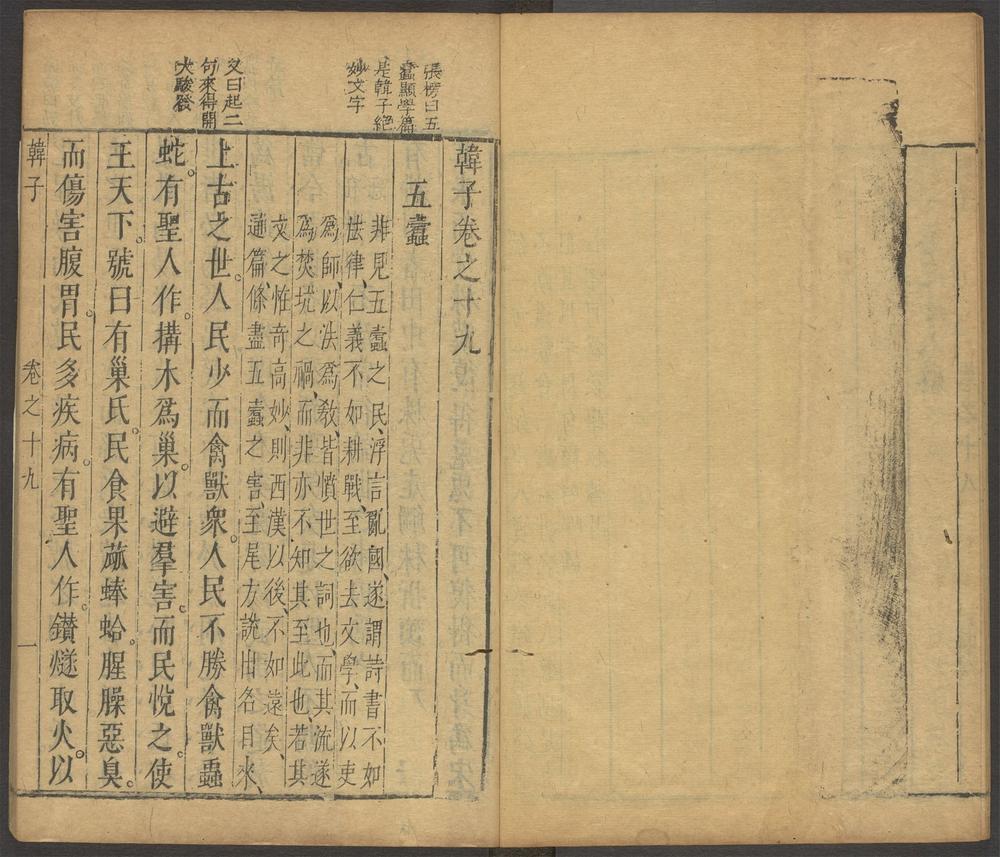 張榜曰五
蠹顯學篇
是韓子絕
妙文字
又曰起二
句來得開
大駿發
韓子卷之十九
五蠹
非見五蠹之民、浮言亂國、遂謂詩書不如
法律、仁義不如耕戰、至欲去文學、而以吏
爲師、以法爲教、皆憤世之詞也、而其流遂
爲焚坑之禍、而非亦不知其至此也、若其
文之惟奇高妙、則西漢以後、不如遠矣、
通篇條盡五蠹之害、至尾方説出名目來、
上古之世。人民少而禽獸衆。人民不勝禽獸蟲
蛇。有聖人作。搆木爲巢。以避羣害。而民悅之。使
王天下。號曰有巢氏。民食果蓏蜯蛤。腥臊惡臭。
而傷害腹胃。民多疾病。有聖人作。鑽燧取火。以
韓子 卷之十九 一